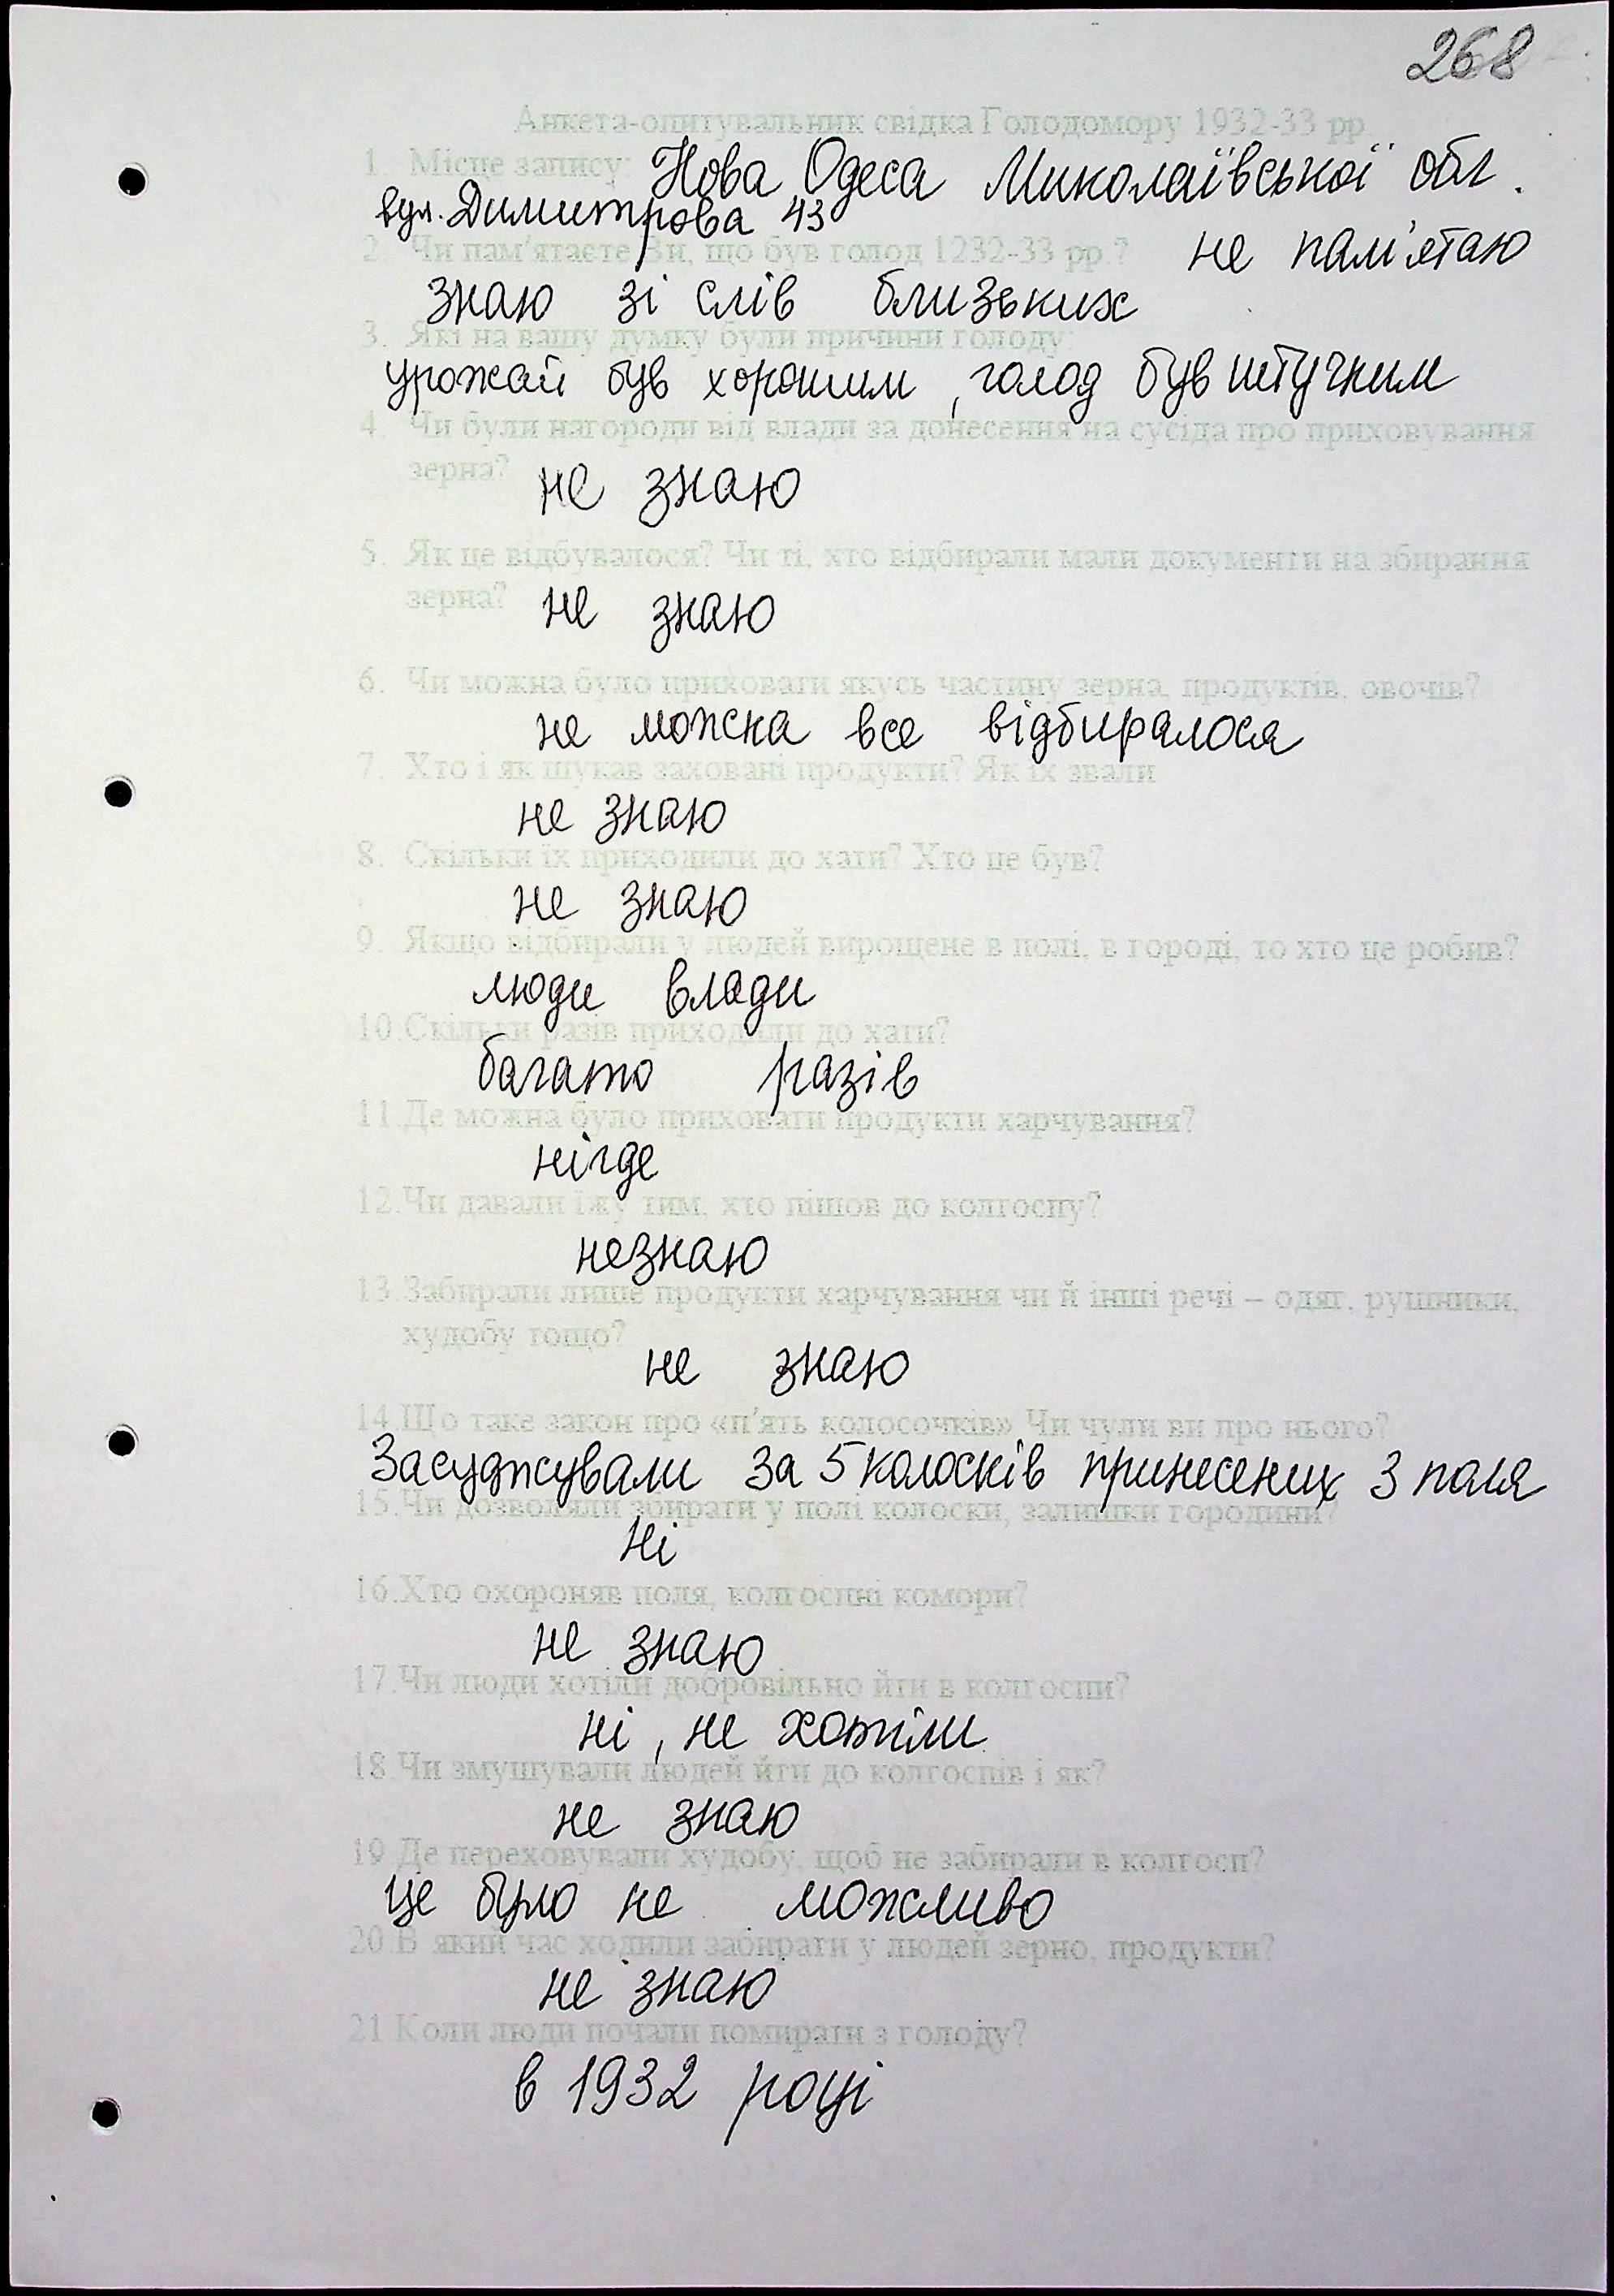 268
Анкета-опитувальник свідка Голодомору 1932-33 рр.
1. Місце запису: Нова Одеса Миколаївської обл.
вул. Димитрова 43
2. Чи пам'ятаєте Ви, що був голод 1232-33 рр.? не пам'ятаю
знаю зі слів близьких
3. Які на вашу думку були причини голоду:
урожай був хорошим, голод був штучним
4. Чи були нагороди від влади за донесення на сусіда про приховування
зерна? не знаю
5. Як це відбувалося? Чи ті, хто відбирали мали документи на збирання
зерна? не знаю
6. Чи можна було приховати якусь частину зерна, продуктів, овочів?
не можна все відбиралося
7. Хто і як шукав заховані продукти? Як їх звали
не знаю
8. Скільки їх приходили до хати? Хто це був?
не знаю
9. Якщо відбирали у людей вирощене в полі, в городі, то хто це робив?
люди влади
10.Скільки разів приходили до хати?
багато разів
11.Де можна було приховати продукти харчування?
нігде
12.Чи давали їжу тим, хто пішов до колгоспу?
незнаю
13.Забирали лише продукти харчування чи й інші речі – одяг, рушники,
худобу тощо? не знаю
14.Що таке закон про «п'ять колосочків» Чи чули ви про нього?
Засуджували за 5 колосків принесених з поля
15.Чи дозволяли збирати у полі колоски, залишки городини?
Ні
16.Хто охороняв поля, колгоспні комори?
не знаю
17.Чи люди хотіли добровільно йти в колгоспи?
ні, не хотіли
18.Чи змушували людей йти до колгоспів і як?
не знаю
19.Де переховували худобу, щоб не забирали в колгосп?
це було не можливо
20.В який час ходили забирати у людей зерно, продукти?
не знаю
21.Коли люди почали помирати з голоду?
в 1932 році